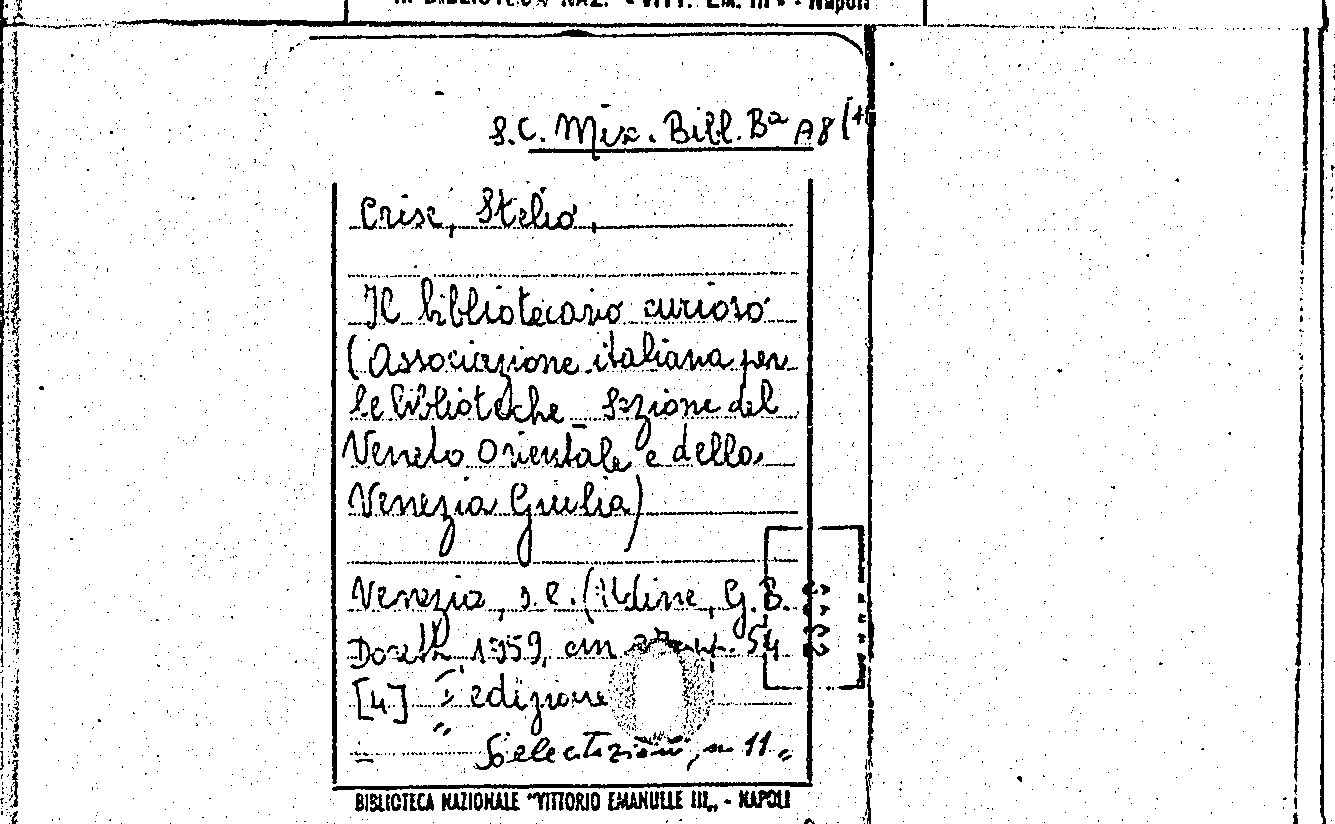 BIBLIOTECA NAZ. "VITT. EM. III" - Napoli
S.C. Misc. Bibl. Bª A8 (4
Crise, Stelio,
Il bibliotecario curioso
(Associazione italiana per
le biblioteche Sezione del
Veneto Orientale e della
Venezia Giulia)
Venezia, s.e. (Udine, G.B.
Doretti, 1959, cm pp. 54
[4] I edizione
" Delectazioni, n 11 "
BIBLIOTECA NAZIONALE "VITTORIO EMANUELE III" - NAPOLI